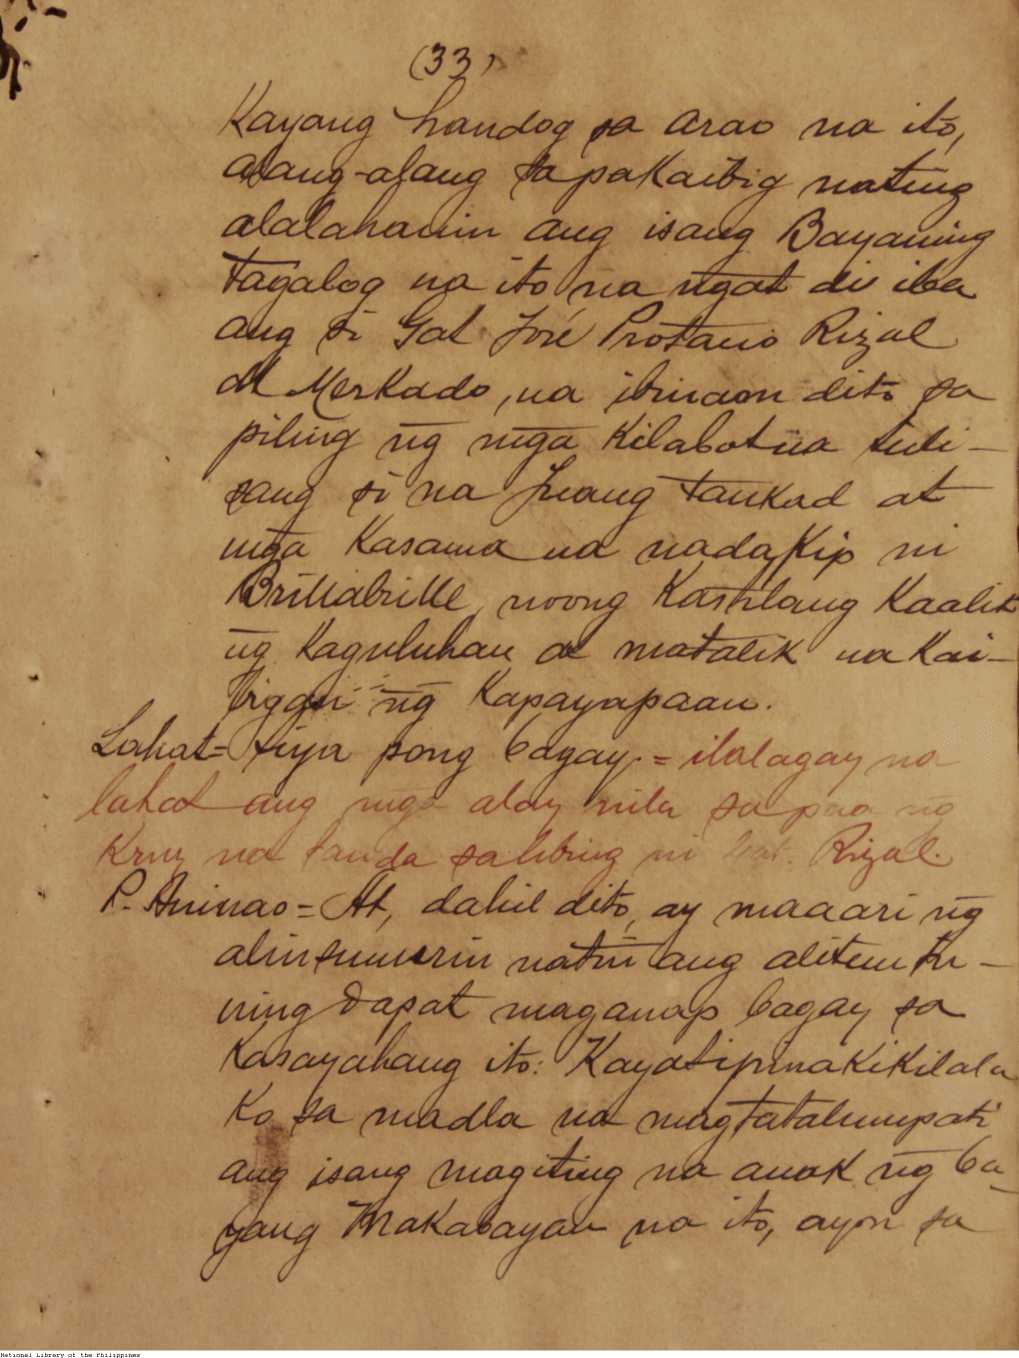 (33)
Kayang handog sa arao na ito,
alang-alang sa pakaibig nating
alalahanin ang isang Bayaning
tagalog na ito na n͠gat di iba
ang si Gat José Protacio Rizal
Merkado, na ibinaon dito sa
piling n͠g mga kilabot na tuli-
sang si na Juang Tankad at
mga kasama na nadakip ni
Brillabrille, noong Kastilang Kaalit
n͠g Kaguluhan at matalik na kai-
bigan n͠g Kapayapaan.
Lahat = Siya pong bagay. = ilalagay na
lahat ang mga alay nila sa paa n͠g
Kruz na tanda sa libing ni Gat. Rizal.
P. Aninao = At, dahil dito, ay maaari n͠g
alinsunurin natin ang alituntu-
ning dapat maganap bagay sa
kasayahang ito: Kaya't ipinakikilala
ko sa madla na magtatalumpati
ang isang magiting na anak n͠g ba-
yang Makabayan na ito, ayon sa
National Library of the Philippines